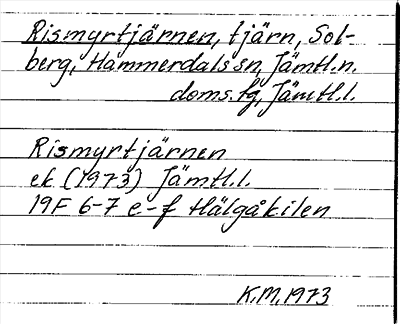 Rismyrtjärnen, tjärn, Sol-
berg, Hammerdals sn, Jämtl.n.
doms.tg, Jämtl.l.
Rismyrtjärnen
ek (1973) Jämtl.l.
19F 6-7 e-f Hälgåkilen
K.M.1973